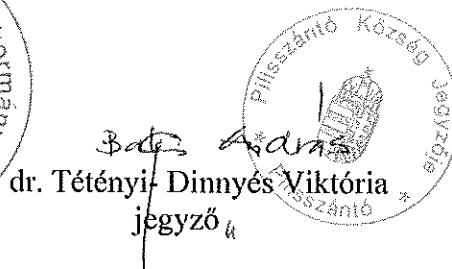 Pilisszántó Község Jegyzője
* Pilisszántó *
András
dr. Tétényi- Dinnyés Viktória
jegyző